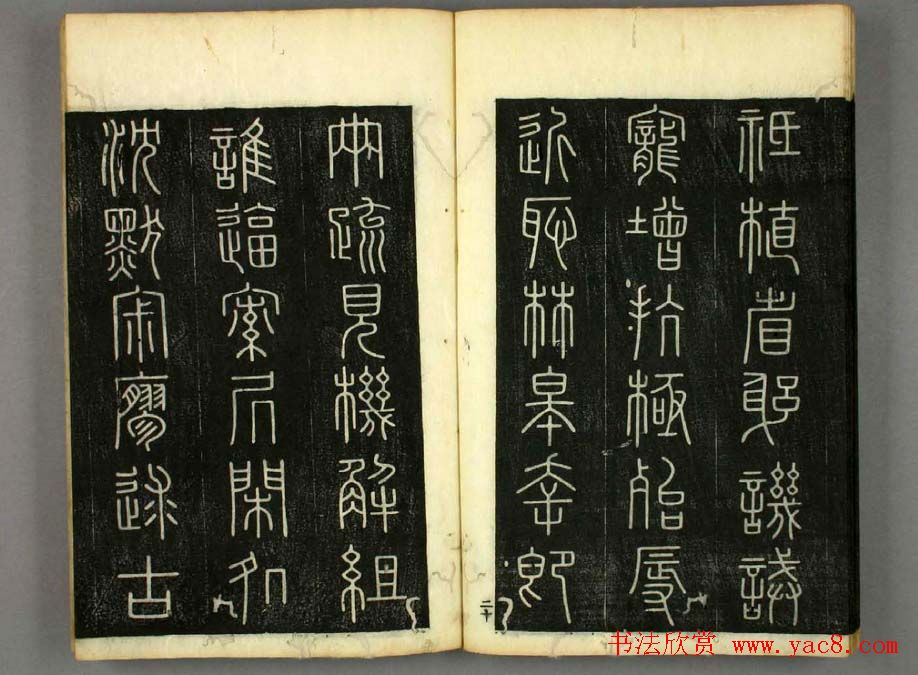 祗植省躬譏誡
寵增抗極殆辱
近恥林皋幸即
二十
兩疏見機解組
誰逼索居閑處
沈默寂寥求古
书法欣赏 www.yac8.com